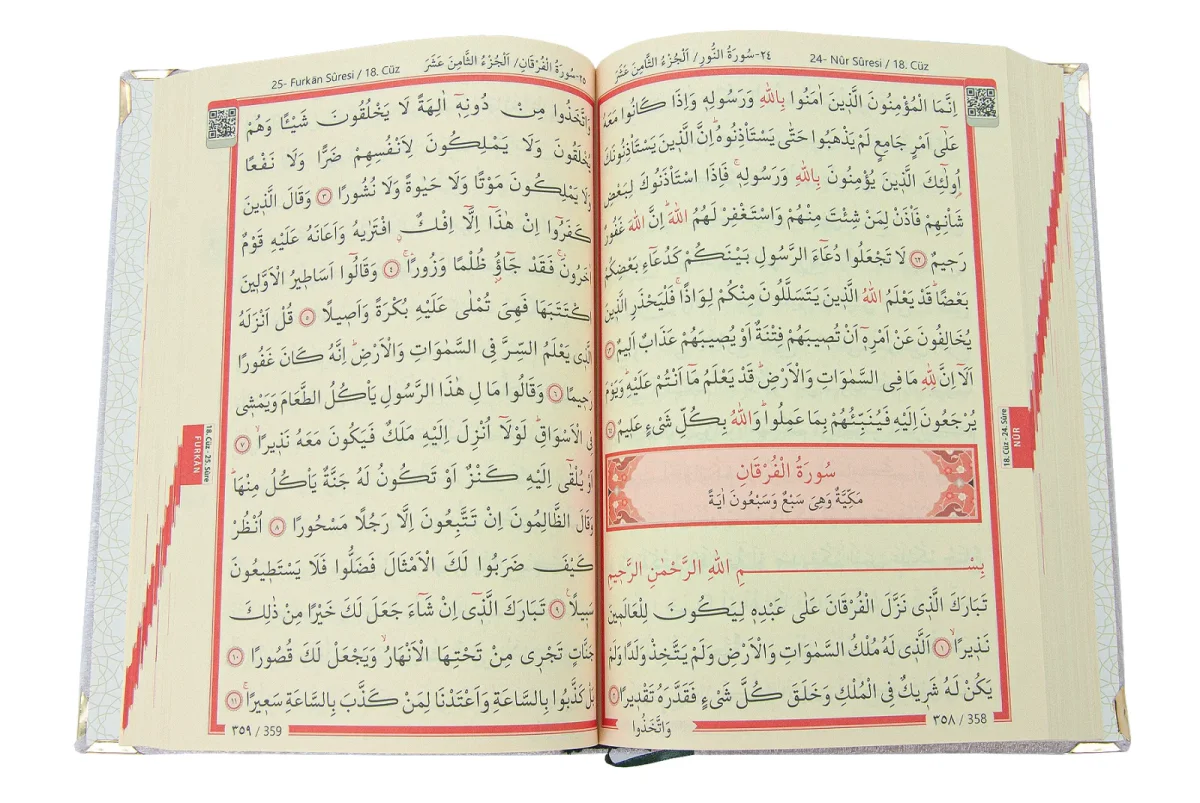 ٢٤-سُورَةُ النُّورِ/ اَلْجُزْءُ الثَّامِنَ عَشَرَ
24- Nûr Sûresi / 18. Cüz
اِنَّمَا الْمُؤْمِنُونَ الَّذٖينَ اٰمَنُوا بِاللّٰهِ وَرَسُولِهٖ وَاِذَا كَانُوا مَعَهُ
عَلٰٓى اَمْرٍ جَامِعٍ لَمْ يَذْهَبُوا حَتّٰى يَسْتَأْذِنُوهُؕ اِنَّ الَّذٖينَ يَسْتَأْذِنُونَكَ
اُو۬لٰٓئِكَ الَّذٖينَ يُؤْمِنُونَ بِاللّٰهِ وَرَسُولِهٖۚ فَاِذَا اسْتَأْذَنُوكَ لِبَعْضِ
شَأْنِهِمْ فَأْذَنْ لِمَنْ شِئْتَ مِنْهُمْ وَاسْتَغْفِرْ لَهُمُ اللّٰهَؕ اِنَّ اللّٰهَ غَفُورٌ
رَحٖيمٌ ٦٢ لَا تَجْعَلُوا دُعَٓاءَ الرَّسُولِ بَيْنَكُمْ كَدُعَٓاءِ بَعْضِكُمْ
بَعْضًاؕ قَدْ يَعْلَمُ اللّٰهُ الَّذٖينَ يَتَسَلَّلُونَ مِنْكُمْ لِوَاذًاۚ فَلْيَحْذَرِ الَّذٖينَ
يُخَالِفُونَ عَنْ اَمْرِهٖٓ اَنْ تُصٖيبَهُمْ فِتْنَةٌ اَوْ يُصٖيبَهُمْ عَذَابٌ اَلٖيمٌ ٦٣
اَلَٓا اِنَّ لِلّٰهِ مَا فِي السَّمٰوَاتِ وَالْاَرْضِؕ قَدْ يَعْلَمُ مَٓا اَنْتُمْ عَلَيْهِؕ وَيَوْمَ
يُرْجَعُونَ اِلَيْهِ فَيُنَبِّئُهُمْ بِمَا عَمِلُواؕ وَاللّٰهُ بِكُلِّ شَيْءٍ عَلٖيمٌ ٦٤
سُورَةُ الْفُرْقَانِ
مَكِّيَّةٌ وَهِيَ سَبْعٌ وَسَبْعُونَ اٰيَةً
بِسْمِ اللّٰهِ الرَّحْمٰنِ الرَّحٖيمِ
تَبَارَكَ الَّذٖي نَزَّلَ الْفُرْقَانَ عَلٰى عَبْدِهٖ لِيَكُونَ لِلْعَالَمٖينَ
نَذٖيرًاۙ ١ اَلَّذٖي لَهُ مُلْكُ السَّمٰوَاتِ وَالْاَرْضِ وَلَمْ يَتَّخِذْ وَلَدًا وَلَمْ
يَكُنْ لَهُ شَرٖيكٌ فِي الْمُلْكِ وَخَلَقَ كُلَّ شَيْءٍ فَقَدَّرَهُ تَقْدٖيرًا ٢
وَاتَّخَذُوا
٣٥٨ / 358
18. Cüz - 24. Sûre
NÛR
٢٥-سُورَةُ الْفُرْقَانِ/ اَلْجُزْءُ الثَّامِنَ عَشَرَ
25- Furkān Sûresi / 18. Cüz
وَاتَّخَذُوا مِنْ دُونِهٖٓ اٰلِهَةً لَا يَخْلُقُونَ شَيْـًٔا وَهُمْ
يُخْلَقُونَ وَلَا يَمْلِكُونَ لِاَنْفُسِهِمْ ضَرًّا وَلَا نَفْعًا
وَلَا يَمْلِكُونَ مَوْتًا وَلَا حَيٰوةً وَلَا نُشُورًا ٣ وَقَالَ الَّذٖينَ
كَفَرُٓوا اِنْ هٰذَٓا اِلَّٓا اِفْكٌۨ افْتَرٰيهُ وَاَعَانَهُ عَلَيْهِ قَوْمٌ
اٰخَرُونَۚ فَقَدْ جَٓاؤُ۫ ظُلْمًا وَزُورًاۚ ٤ وَقَالُٓوا اَسَاطٖيرُ الْاَوَّلٖينَ
اكْتَتَبَهَا فَهِيَ تُمْلٰى عَلَيْهِ بُكْرَةً وَاَصٖيلًا ٥ قُلْ اَنْزَلَهُ
الَّذٖي يَعْلَمُ السِّرَّ فِي السَّمٰوَاتِ وَالْاَرْضِؕ اِنَّهُ كَانَ غَفُورًا
رَحٖيمًا ٦ وَقَالُوا مَا لِ هٰذَا الرَّسُولِ يَأْكُلُ الطَّعَامَ وَيَمْشٖي
فِي الْاَسْوَاقِؕ لَوْلَٓا اُنْزِلَ اِلَيْهِ مَلَكٌ فَيَكُونَ مَعَهُ نَذٖيرًاۙ ٧
اَوْ يُلْقٰٓى اِلَيْهِ كَنْزٌ اَوْ تَكُونُ لَهُ جَنَّةٌ يَأْكُلُ مِنْهَاؕ
وَقَالَ الظَّالِمُونَ اِنْ تَتَّبِعُونَ اِلَّا رَجُلًا مَسْحُورًا ٨ اُنْظُرْ
كَيْفَ ضَرَبُوا لَكَ الْاَمْثَالَ فَضَلُّوا فَلَا يَسْتَطٖيعُونَ
سَبٖيلًاۚ ٩ تَبَارَكَ الَّذٖٓي اِنْ شَٓاءَ جَعَلَ لَكَ خَيْرًا مِنْ ذٰلِكَ
جَنَّاتٍ تَجْرٖي مِنْ تَحْتِهَا الْاَنْهَارُۙ وَيَجْعَلْ لَكَ قُصُورًا ١٠
بَلْ كَذَّبُوا بِالسَّاعَةِ وَاَعْتَدْنَا لِمَنْ كَذَّبَ بِالسَّاعَةِ سَعٖيرًاۚ ١١
٣٥٩ / 359
18. Cüz - 25. Sûre
FURKĀN